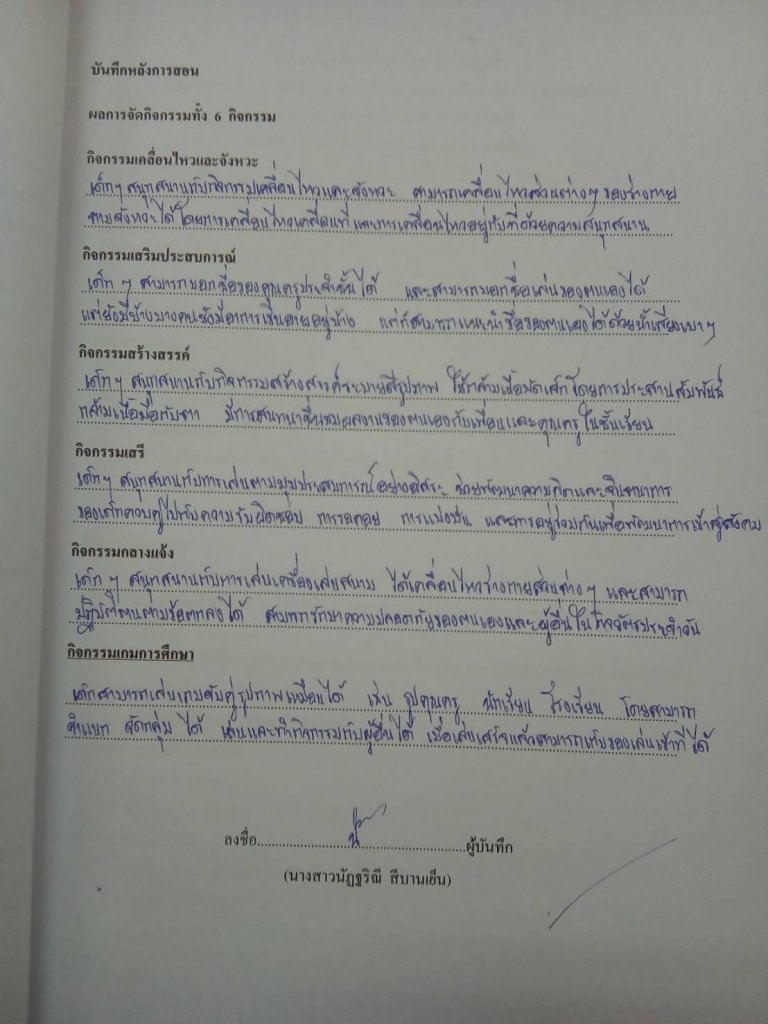 บันทึกหลังการสอน
ผลการจัดกิจกรรมทั้ง 6 กิจกรรม
กิจกรรมเคลื่อนไหวและจังหวะ
เด็กๆ สนุกสนานกับกิจกรรมเคลื่อนไหวและจังหวะ สามารถเคลื่อนไหวส่วนต่างๆ ของร่างกาย
ตามจังหวะได้โดยการเคลื่อนไหวเคลื่อนที่และการเคลื่อนไหวอยู่กับที่ด้วยความสนุกสนาน
กิจกรรมเสริมประสบการณ์
เด็ก ๆ สามารถบอกชื่อของคุณครูประจำชั้นได้ และสามารถบอกชื่อเล่นของตนเองได้
แต่ยังมีบ้างบางคนยังมีอาการเขินอายอยู่บ้าง แต่ก็สามารถแนะนำชื่อของตนเองได้ด้วยน้ำเสียงเบาๆ
กิจกรรมสร้างสรรค์
เด็กๆ สนุกสนานกับกิจกรรมสร้างสรรค์ระบายสีรูปภาพ ใช้กล้ามเนื้อมัดเล็กโดยการประสานสัมพันธ์
กล้ามเนื้อมือกับตา มีการสนทนาชื่นชมผลงานของตนเองกับเพื่อนและคุณครูในชั้นเรียน
กิจกรรมเสรี
เด็กๆ สนุกสนานกับการเล่นตามมุมประสบการณ์อย่างอิสระ ช่วยพัฒนาความคิดและจินตนาการ
ของเด็กควบคู่ไปกับความรับผิดชอบ การรอคอย การแบ่งปัน และการอยู่ร่วมกันเพื่อพัฒนาการเข้าสู่สังคม
กิจกรรมกลางแจ้ง
เด็ก ๆ สนุกสนานกับการเล่นเครื่องเล่นสนาม ได้เคลื่อนไหวร่างกายส่วนต่างๆ และสามารถ
ปฏิบัติตนตามข้อตกลงได้ สามารถรักษาความปลอดภัยของตนเองและผู้อื่นในกิจวัตรประจำวัน
กิจกรรมเกมการศึกษา
เด็กสามารถเล่นเกมจับคู่รูปภาพเหมือนได้ เช่น รูปคุณครู นักเรียน โรงเรียน โดยสามารถ
จำแนก จัดกลุ่ม ได้ เล่นและทำกิจกรรมกับผู้อื่นได้ เมื่อเล่นเสร็จแล้วสามารถเก็บของเล่นเข้าที่ได้
ลงชื่อ..................................................ผู้บันทึก
(นางสาวนัฏฐริณี สีบานเย็น)